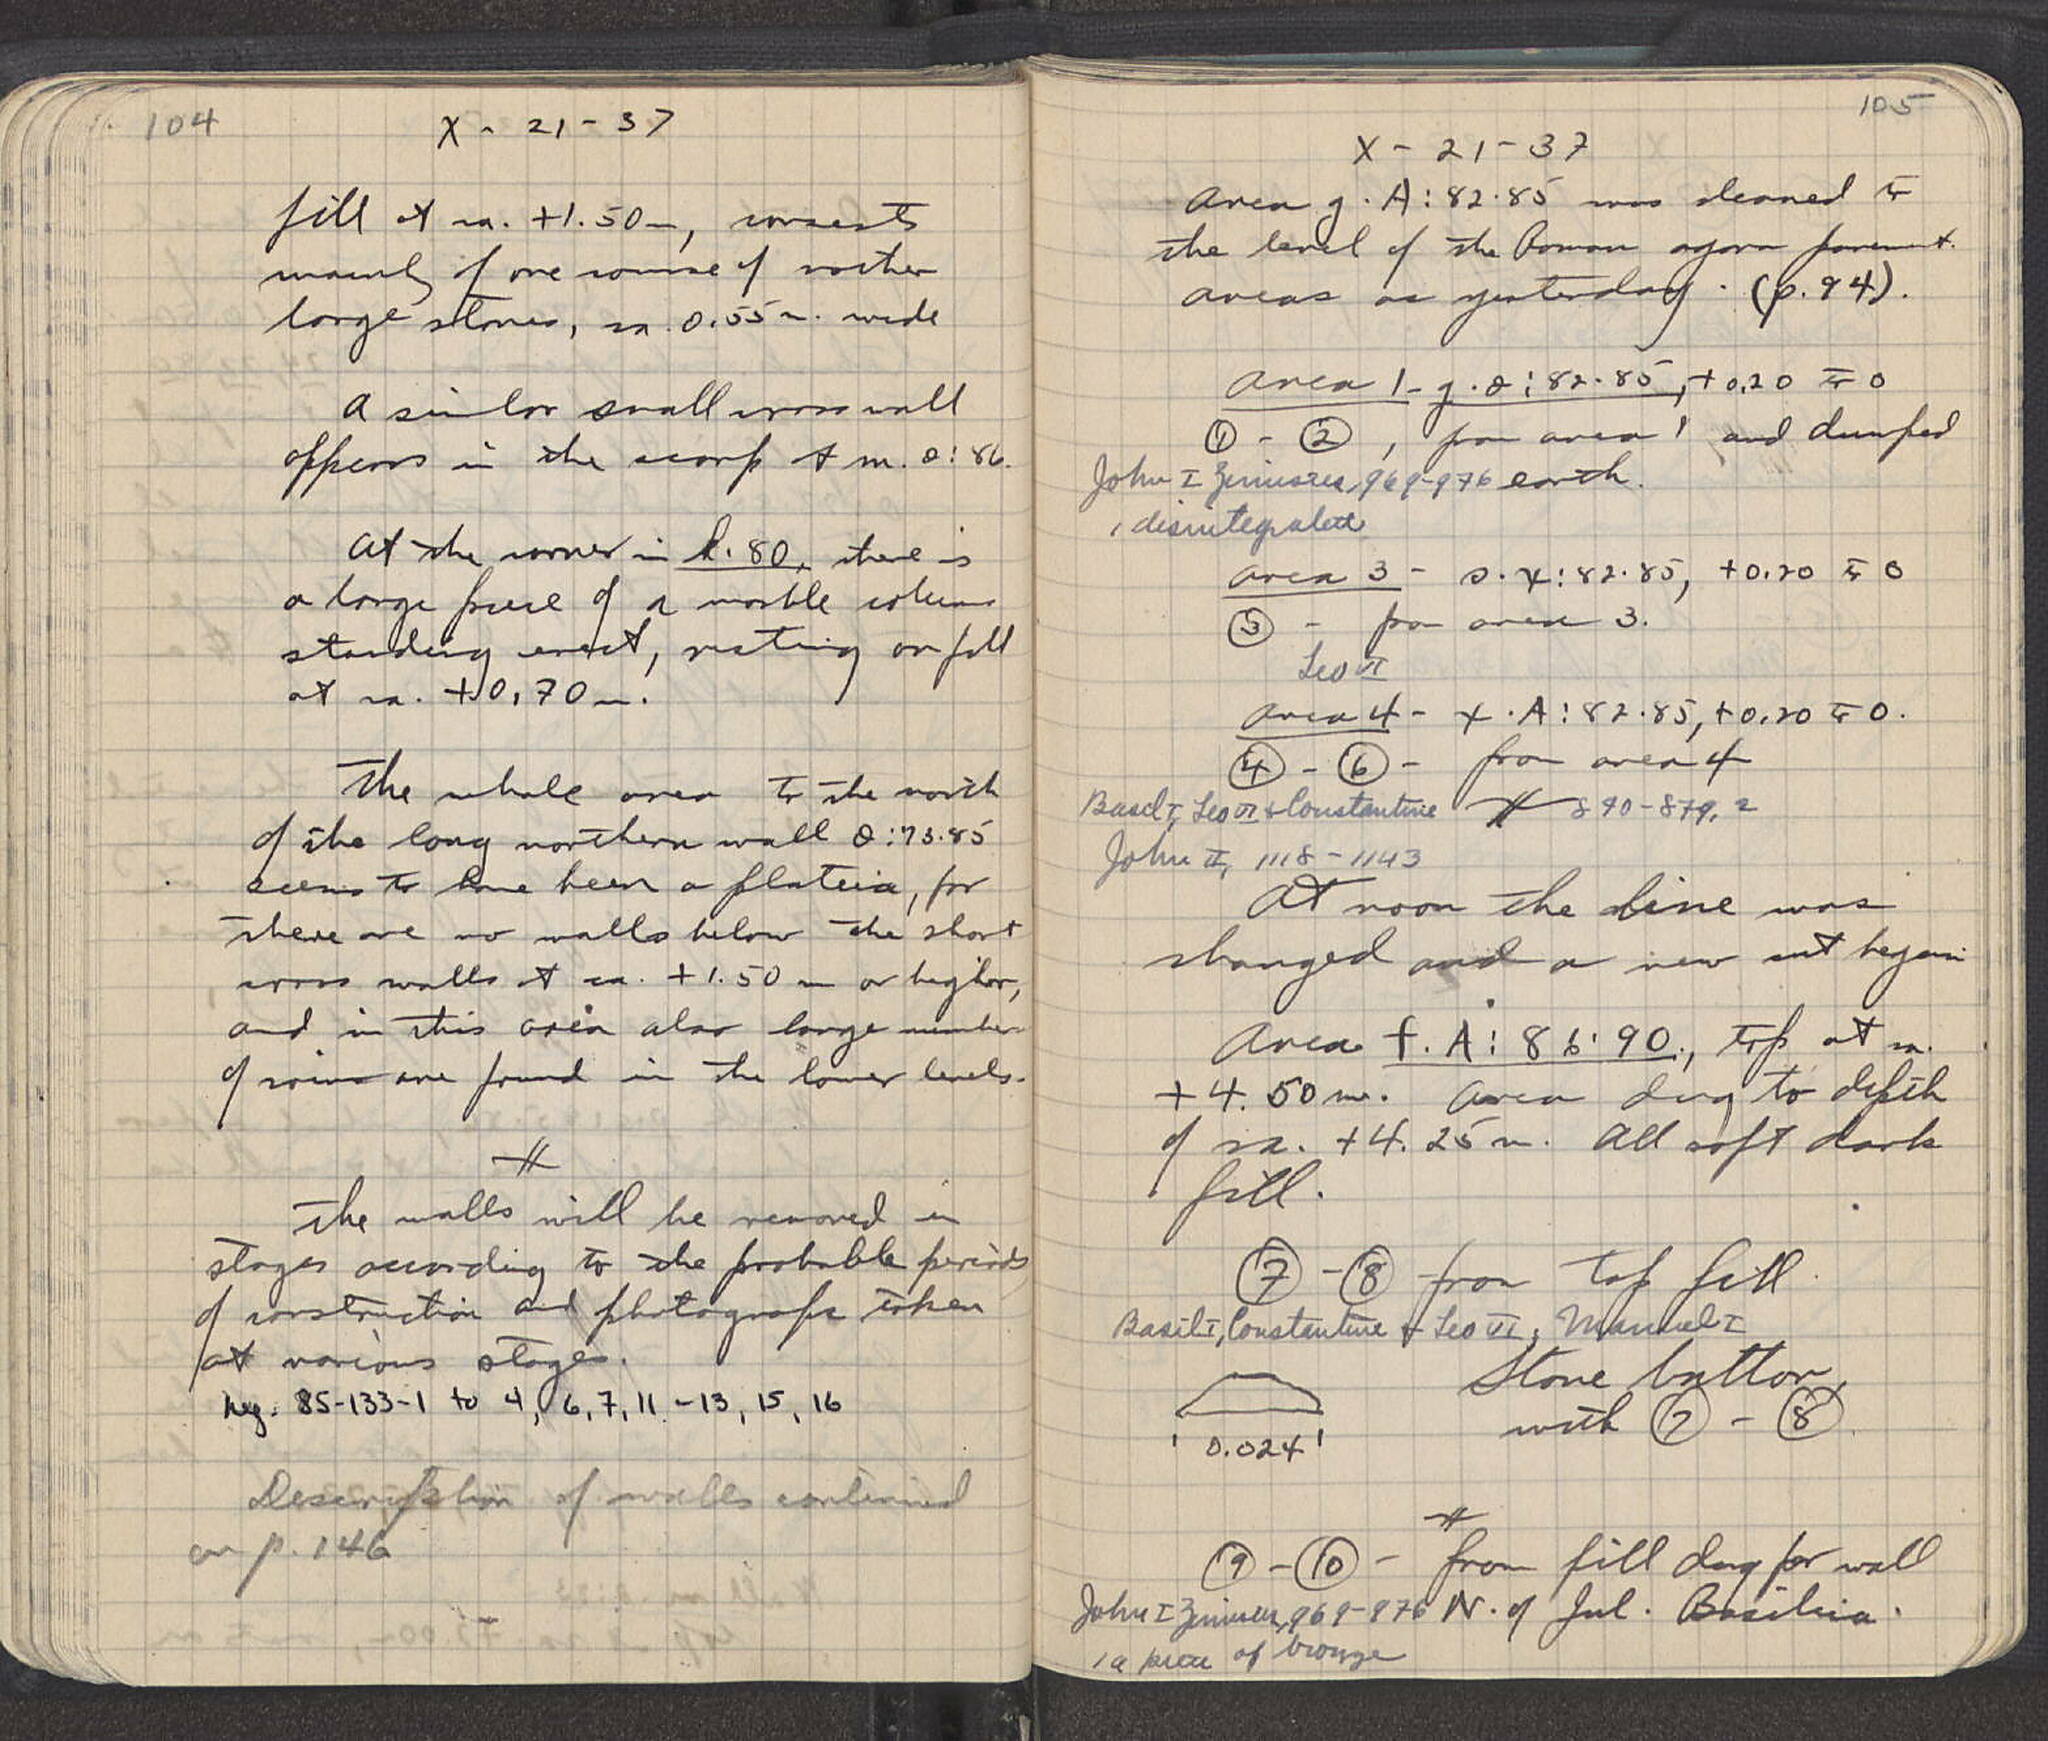 104
X - 21 - 37
fill at ca. +1.50 m, consists
mainly of one course of rather
large stones, ca. 0.55 m. wide
A similar small cross wall
appears in the scarp at m. θ:86.
At the corner in k.80, there is
a large piece of a marble column
standing erect, resting on fill
at ca. +0.70 m.
The whole area to the north
of the long northern wall θ:73.85
seems to have been a plateia, for
there are no walls below the short
cross walls at ca. +1.50 m or higher,
and in this area also large number
of coins are found in the lower levels.
#
The walls will be removed in
stages according to the probable periods
of construction and photographs taken
at various stages.
Neg. 85-133-1 to 4, 6, 7, 11 - 13, 15, 16
Description of walls continued
on p. 146
105
X - 21 - 37
Area g. A:82.85 was cleaned to
the level of the Roman agora pavement.
areas as yesterday. (p. 94).
Area 1 - g.θ:82.85, +0.20 to 0
① - ②, from area 1 and dumped
John I Zimisces, 969-976 earth.
1 disintegrated
Area 3 - :82.85, +0.20 to 0
③ - from area 3.
Leo VI
Area 4 - A:82.85, +0.20 to 0.
④ - ⑥ - from area 4
Basil I, Leo VI & Constantine # 870-879, 2
John II, 1118-1143
At noon the line was
changed and a new cut begun
Area f. A:86:90., top at ca.
+4.50 m. Area dug to depth
of ca. +4.25 m. All soft dark
fill.
⑦ - ⑧ from top fill.
Basil I, Constantine & Leo VI, Manuel I
Stone button,
with ⑦ - ⑧.
0.024
#
⑨ - ⑩ - from fill dug for wall
John I Zimisces, 969-976 N. of Jul. Basilica.
1 a piece of bronze